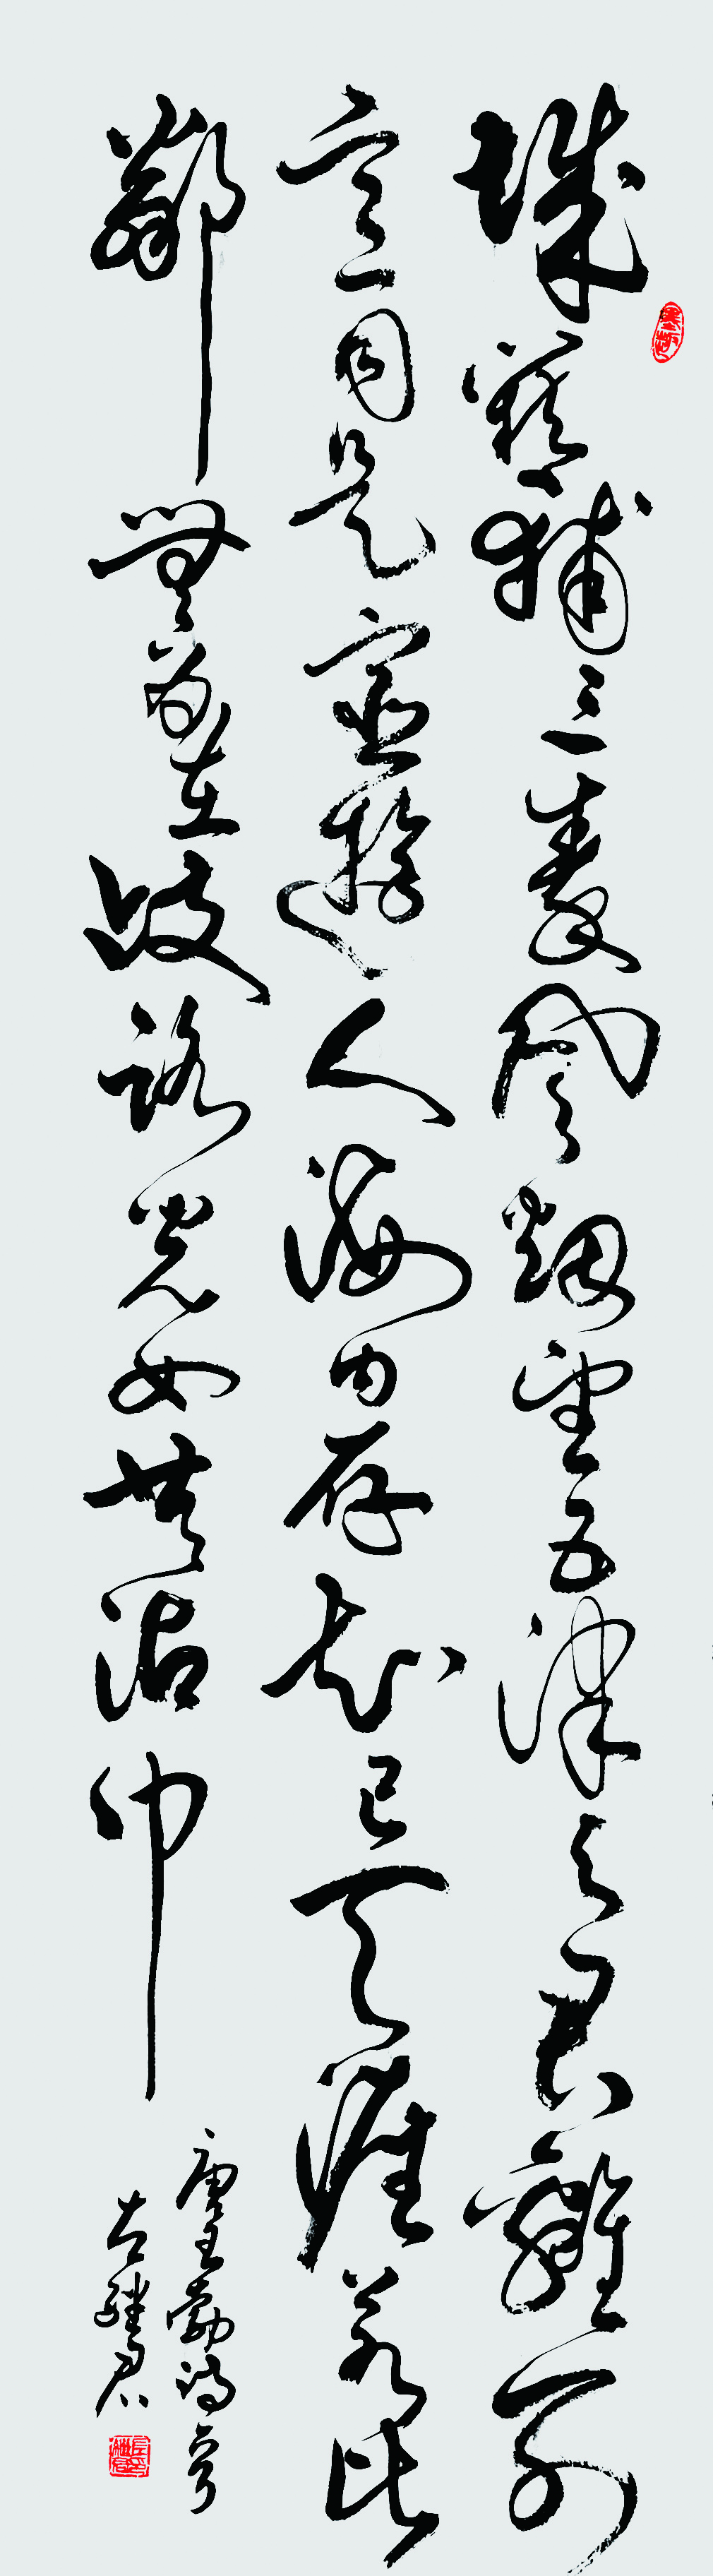 城闕輔三秦風煙望五津与君離別
意同是宦遊人海內存知己天涯若比
鄰無為在歧路兒女共沾巾
唐王勃詩
古君